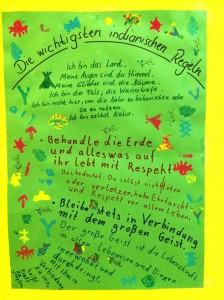 Die wichtigsten indianischen Regeln
Ich bin das Land.
Meine Augen sind der Himmel.
Meine Glieder sind die Bäume.
Ich bin der Fels, die Wassertiefe.
Ich bin nicht hier, um die Natur zu beherrschen oder
sie zu nutzen.
Ich bin selbst Natur.
• Behandle die Erde
und alles was auf
ihr lebt mit Respekt
Das bedeutet: Du sollst nicht töten
oder verletzen, habe Ehrfurcht
und Respekt vor allem Leben.
• Bleibe stets in Verbindung
mit dem großen Geist.
Der große Geist ist die Lebenskraft
die allen Lebewesen und Dingen
innewohnt und
durchdringt